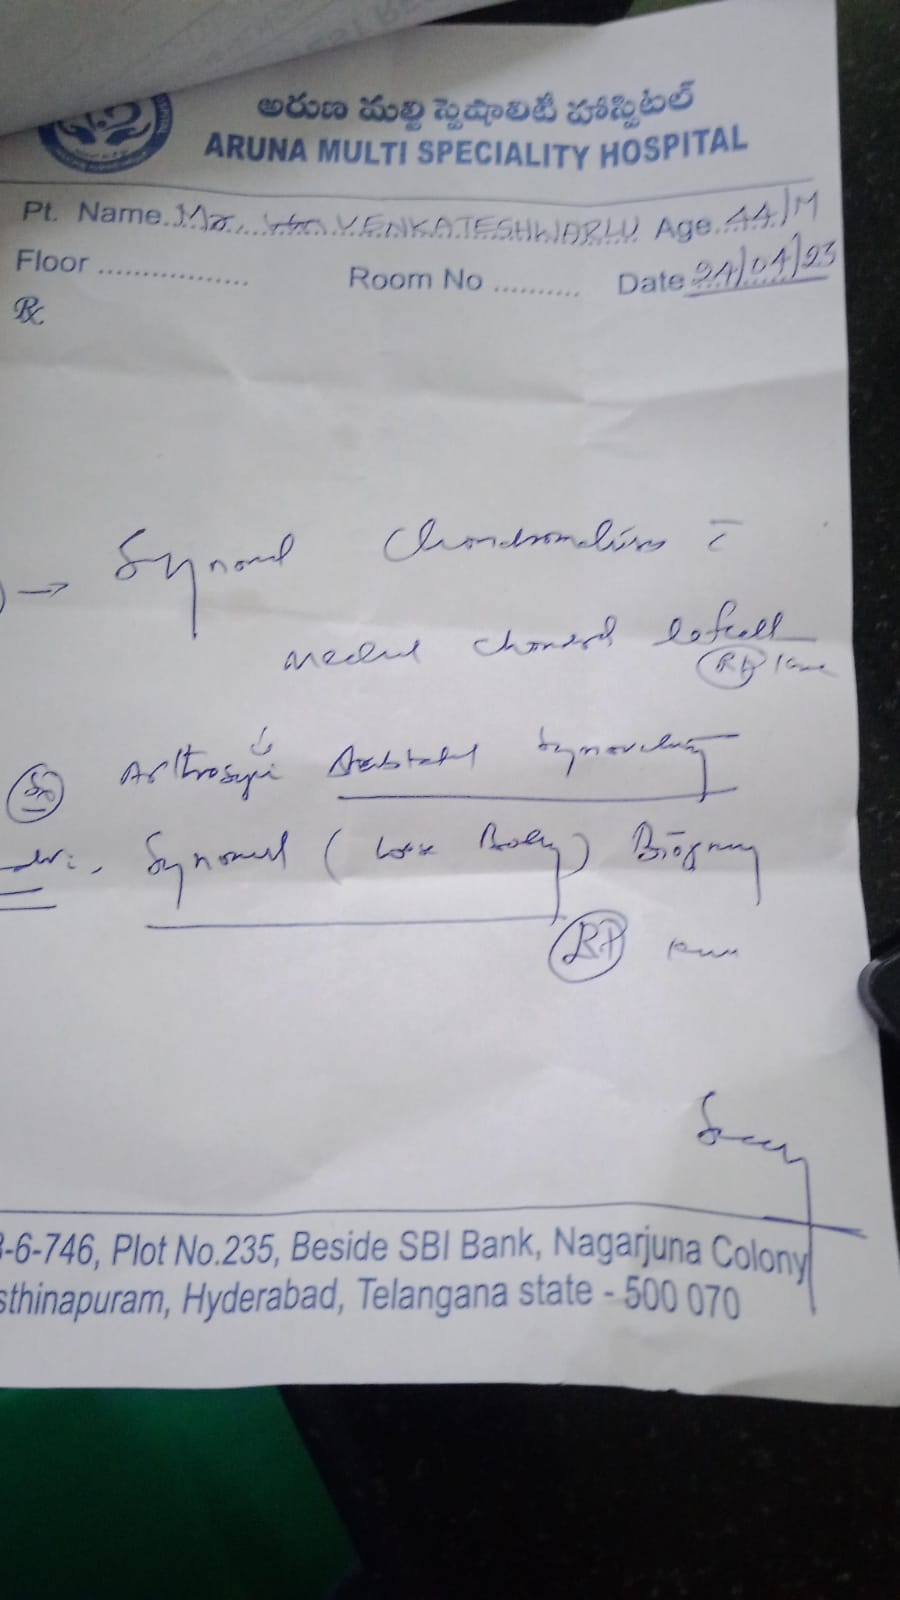 అరుణ మల్టి స్పెషాలిటీ హాస్పిటల్
ARUNA MULTI SPECIALITY HOSPITAL
Pt. Name Mr. VENKATESHWARLU Age 44/M
Floor .................. Room No .......... Date 24/04/23
Rx
→ Synovial Chondromatosis c̄
Medial chondral
Rt knee
Arthroscopic Subtotal Synovectomy
Synovial (Loose Body) Biopsy
RT knee
3-6-746, Plot No.235, Beside SBI Bank, Nagarjuna Colony
sthinapuram, Hyderabad, Telangana state - 500 070